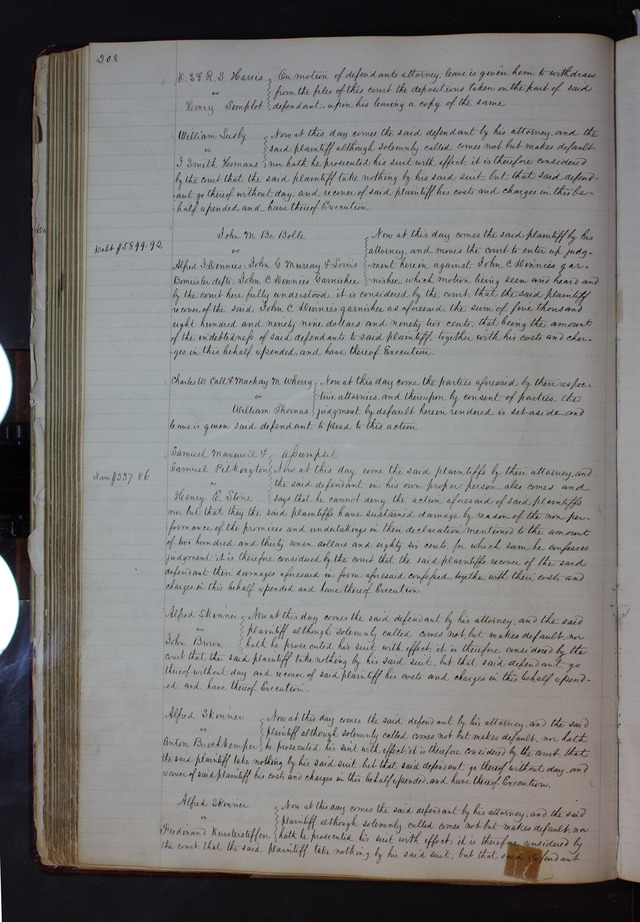 208
D. & R. S. Harris On motion of defendants attorney, leave is given him to withdraw
vs from the files of this court the depositions taken on the part of said
Henry Semplot defendant, upon his leaving a copy of the same
William Lusby Now at this day comes the said defendant by his attorney, and the
vs said plaintiff although solemnly called, comes not but makes default
I Smith Homans nor hath he prosecuted his suit with effect, it is therefore considered
by the court that the said plaintiff take nothing by his said suit but that said defend-
ant go thereof without day, and recover of said plaintiff his costs and charges in this be-
half expended and have thereof Execution
John M. De Bolle Now at this day comes the said plaintiff by his
Debt $5899.92 vs attorney, and moves the court to enter up judg-
Alfred J Dennies, John G Murray & Louis ment herein against John C Dennies gar-
Bomeisler defts. John C Dennies Garnishee nishee, which motion being seen and heard and
by the court here fully understood it is considered by the court, that the said plaintiff
recover of the said John C. Dennies garnishee as aforesaid, the sum of five thousand
eight hundred and ninety nine dollars and ninety two cents, that being the amount
of the indebtedness of said defendants to said plaintiff, together with his costs and char-
ges in this behalf expended, and have thereof Execution.
Charles W Call & Mackay M. Wherry Now at this day come the parties aforesaid by their respec-
vs tive attornies, and thereupon by consent of parties, the
William Thomas judgment by default herein rendered is set aside, and
leave is given said defendant to plead to this action.
Samuel Maxwell & Assumpsit
Dam $237.86 Samuel Pilkington Now at this day come the said plaintiffs by their attorney, and
vs the said defendant in his own proper person, also comes and
Henry E. Stone says that he cannot deny the action aforesaid of said plaintiffs
nor but that they the said plaintiffs have sustained damage by reason of the non per-
formance of the promises and undertakings in their declaration mentioned to the amount
of two hundred and thirty seven dollars and eighty six cents, for which sum he confesses
judgment, it is therefore considered by the court that the said plaintiffs recover of the said
defendant their damages aforesaid in form aforesaid confessed, together with their costs and
charges in this behalf expended and have thereof Execution
Alfred Skinner Now at this day comes the said defendant by his attorney, and the said
vs plaintiff although solemnly called comes not but makes default, nor
John Brown hath he prosecuted his suit with effect, it is therefore considered by the
court that the said plaintiff take nothing by his said suit, but that said defendant go
thereof without day and recover of said plaintiff his costs and charges in this behalf expend-
ed and have thereof Execution.
Alfred Skinner Now at this day comes the said defendant by his attorney, and the said
vs plaintiff although solemnly called comes not but makes default, nor hath
Anton Buschkemper he prosecuted his suit with effect, it is therefore considered by the court, that
the said plaintiff take nothing by his said suit, but that said defendant go thereof without day, and
recover of said plaintiff his costs and charges in this behalf expended, and have thereof Execution,
Alfred Skinner Now at this day comes the said defendant by his attorney, and the said
vs plaintiff although solemnly called comes not but makes default, nor
Ferdinand hath he prosecuted his suit with effect, it is therefore considered by
the court, that the said plaintiff take nothing by his said suit, but that said defendant